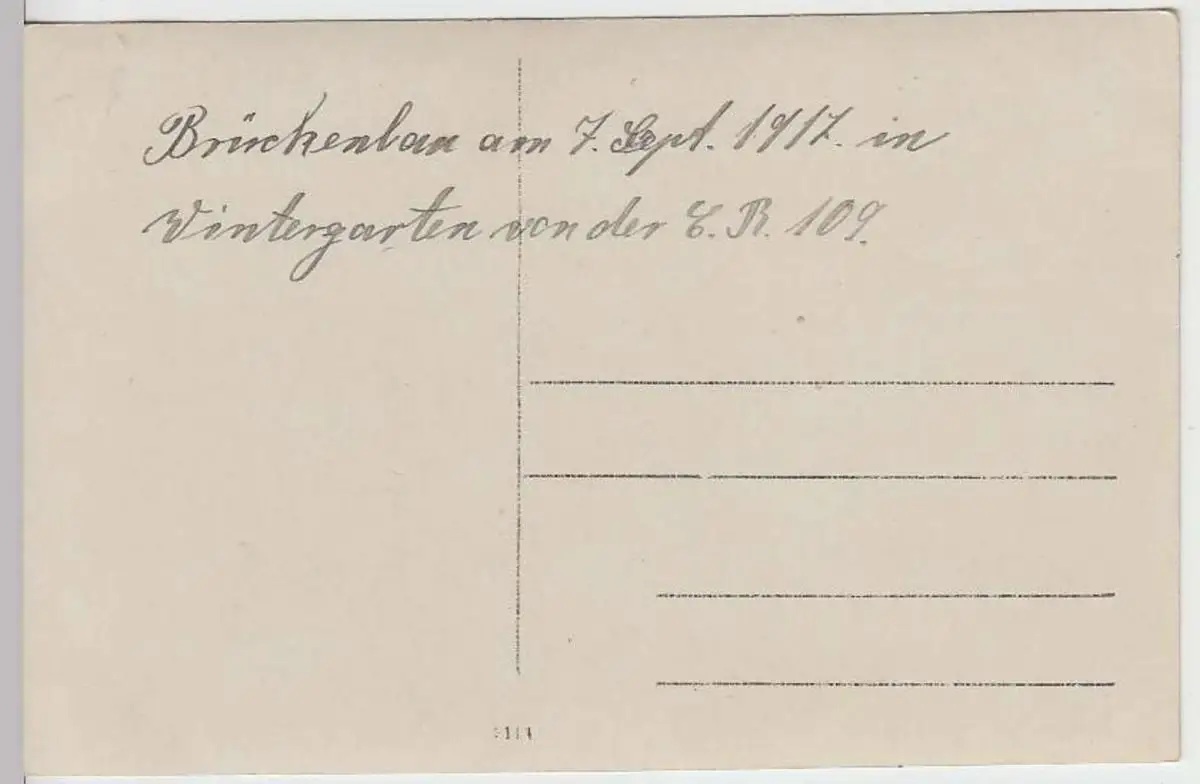 Brückenbau am 7. Sept. 1917. in
Wintergarten von der E. R. 109.